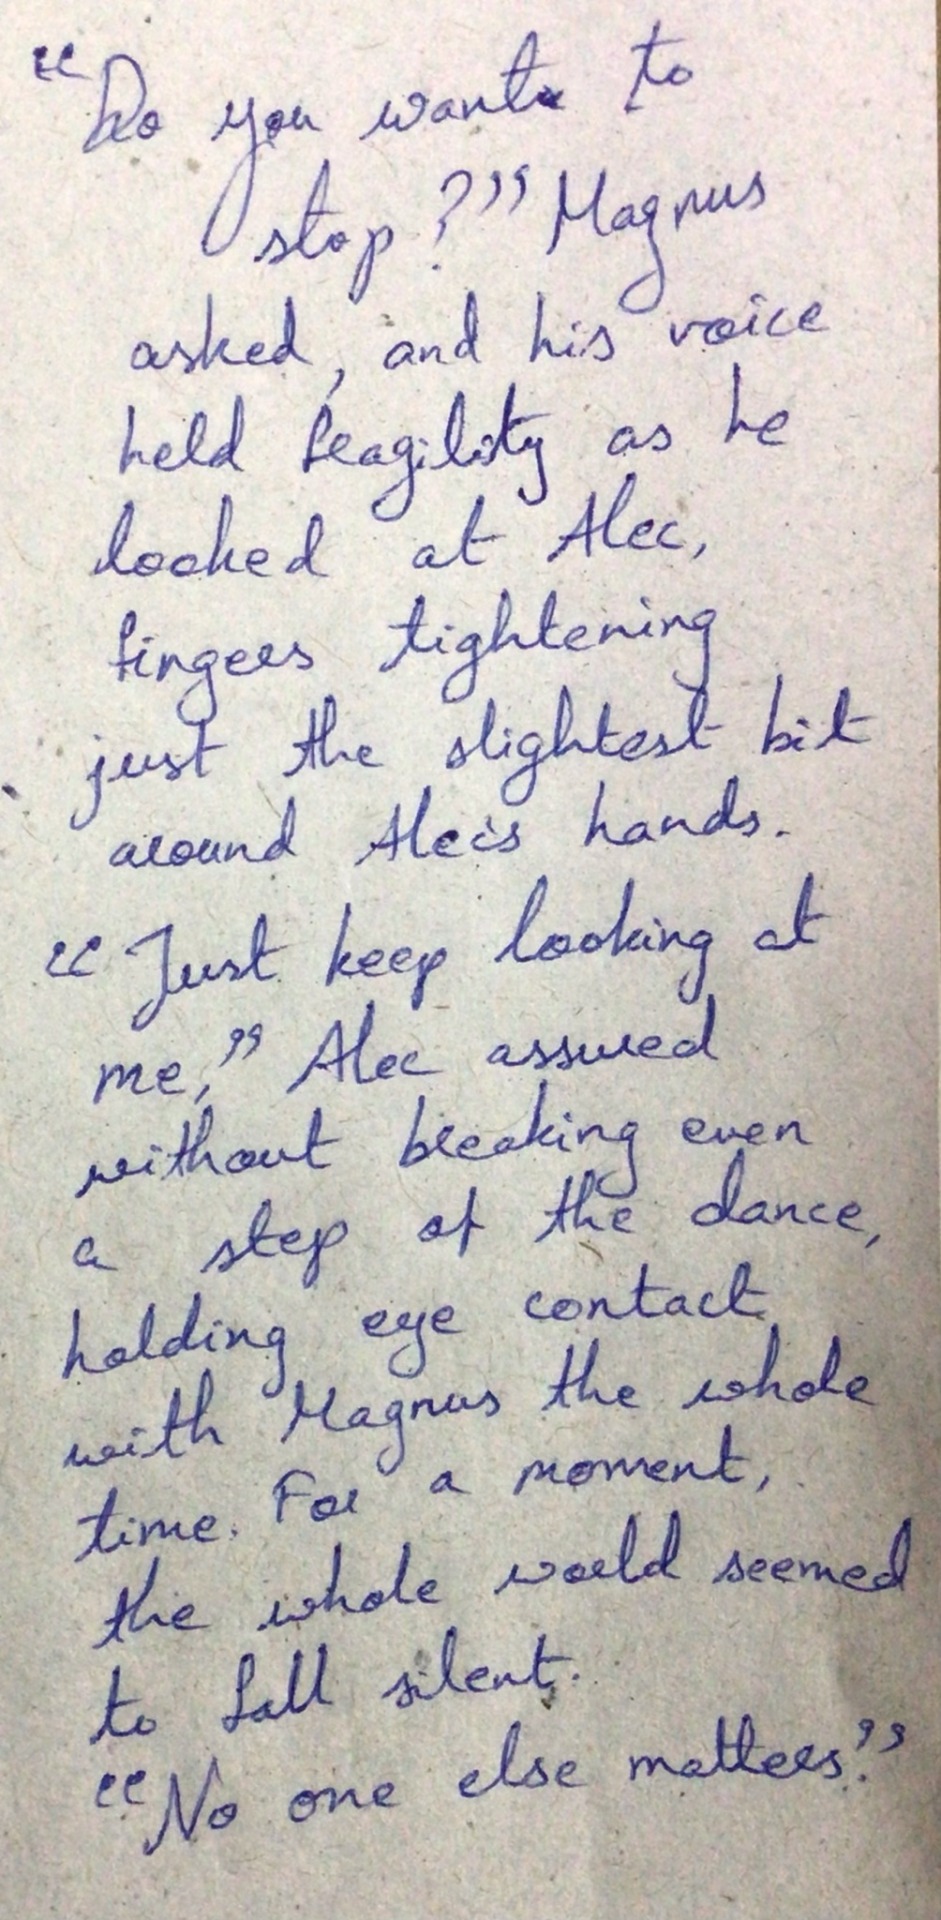 "Do you want to
stop?" Magnus
asked, and his voice
held fragility as he
looked at Alec,
fingers tightening
just the slightest bit
around Alec's hands.
"Just keep looking at
me," Alec assured
without breaking even
a step of the dance,
holding eye contact
with Magnus the whole
time. For a moment,
the whole world seemed
to fall silent.
"No one else matters."